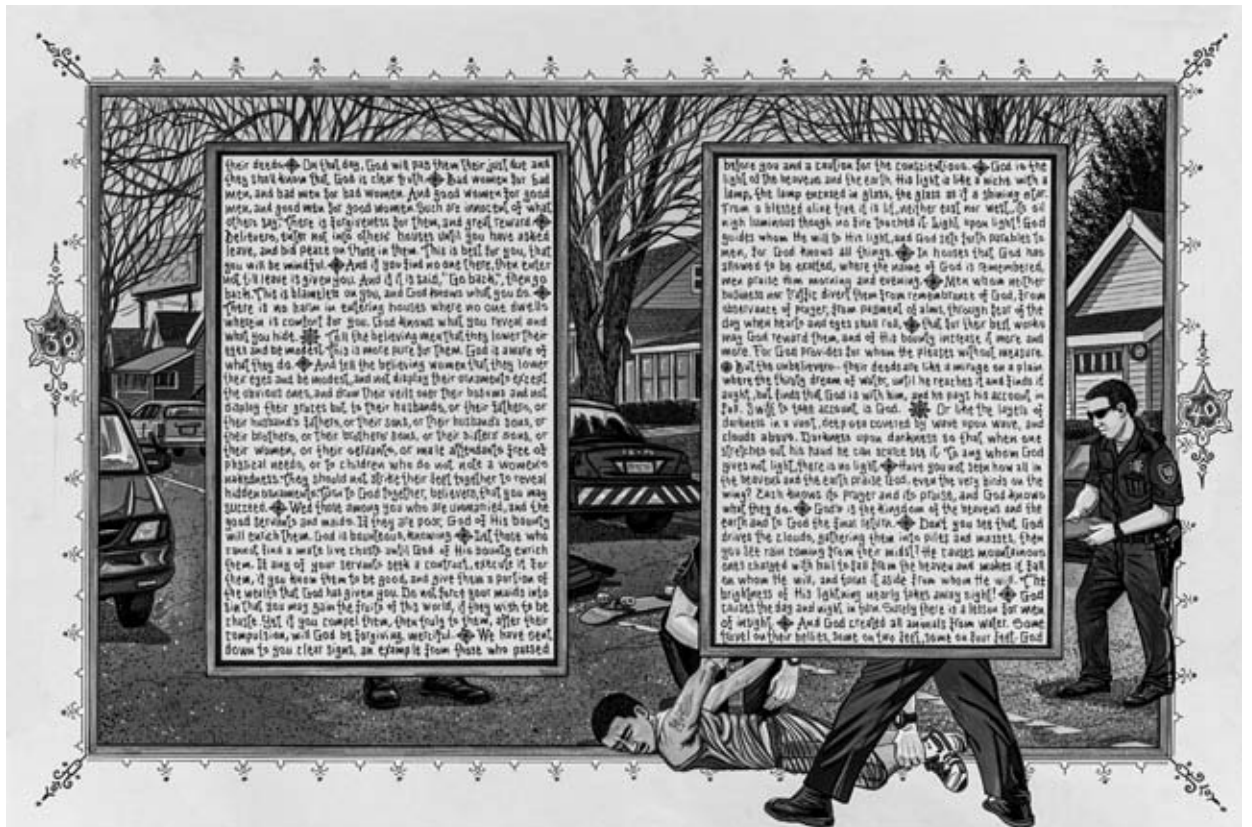 their deeds. On that day, God will pay them their just due and
they shall know that God is clear truth. Bad women for bad
men, and bad men for bad women. And good women for good
men, and good men for good women. Such are innocent of what
others say. There is forgiveness for them, and great reward.
Believers, enter not into others' houses until you have asked
leave, and bid peace on those in them. This is best for you, that
you will be mindful. And if you find no one there, then enter
not til leave is given you. And if it is said, "Go back," then go
back. This is blameless on you, and God knows what you do.
There is no harm in entering houses where no one dwells
wherein is comfort for you. God knows what you reveal and
what you hide. Tell the believing men that they lower their
eyes and be modest. This is more pure for them. God is aware of
what they do. And tell the believing women that they lower
their eyes and be modest, and not display their ornaments except
the obvious ones, and draw their veils over their bosoms and not
display their graces but to their husbands, or their fathers, or
their husband's fathers, or their sons, or their husband's sons, or
their brothers, or their brothers' sons, or their sisters' sons, or
their women, or their servants, or male attendants free of
physical needs, or to children who do not note a women's
nakedness. They should not strike their feet together to reveal
hidden ornaments. Turn to God together, believers, that you may
succeed. Wed those among you who are unmarried, and the
good servants and maids. If they are poor, God of His bounty
will enrich them. God is bounteous, knowing. Let those who
cannot find a mate live chaste until God of His bounty enrich
them. If any of your servants seek a contract, execute it for
them, if you know them to be good, and give them a portion of
the wealth that God has given you. Do not force your maids into
sin that you may gain the fruits of this world, if they wish to be
chaste. Yet if you compel them, then truly to them, after their
compulsion, will God be forgiving, merciful. We have sent
down to you clear signs, an example from those who passed
before you and a caution for the conscientious. God is the
light of the heavens and the earth. His light is like a niche with a
lamp, the lamp encased in glass, the glass as if a shining star.
From a blessed olive tree it is lit, neither east nor west, its oil
nigh luminous though no fire touched it. Light upon light! God
guides whom He will to His light, and God sets forth parables to
men, for God knows all things. In houses that God has
allowed to be exalted, where the name of God is remembered,
men praise Him morning and evening. Men whom neither
business nor traffic divert them from remembrance of God, from
observance of prayer, from payment of alms, through fear of the
day when hearts and eyes shall roll, that for their best works
may God reward them, and of His bounty increase it more and
more. For God provides for whom He pleases without measure.
But the unbelievers- their deeds are like a mirage on a plain
where the thirsty dream of water, until he reaches it and finds it
aught, but finds that God is with him, and he pays his account in
full. Swift to take account is God. Or like the layers of
darkness in a vast, deep sea covered by wave upon wave, and
clouds above. Darkness upon darkness so that when one
stretches out his hand he can scarce see it. To any whom God
gives not light, there is no light. Have you not seen how all in
the heavens and the earth praise God, even the very birds on the
wing? Each knows its prayer and its praise, and God knows
what they do. God's is the kingdom of the heavens and the
earth and to God the final return. Don't you see that God
drives the clouds, gathering them into piles and masses, then
you see rain coming from their midst? He causes mountainous
ones charged with hail to fall from the heaven and makes it fall
on whom He will, and turns it aside from whom He will. The
brightness of His lightning nearly takes away sight! God
causes the day and night in turn. Surely there is a lesson for men
of insight. And God created all animals from water. Some
travel on their bellies, some on two feet, some on four feet. God
30
40